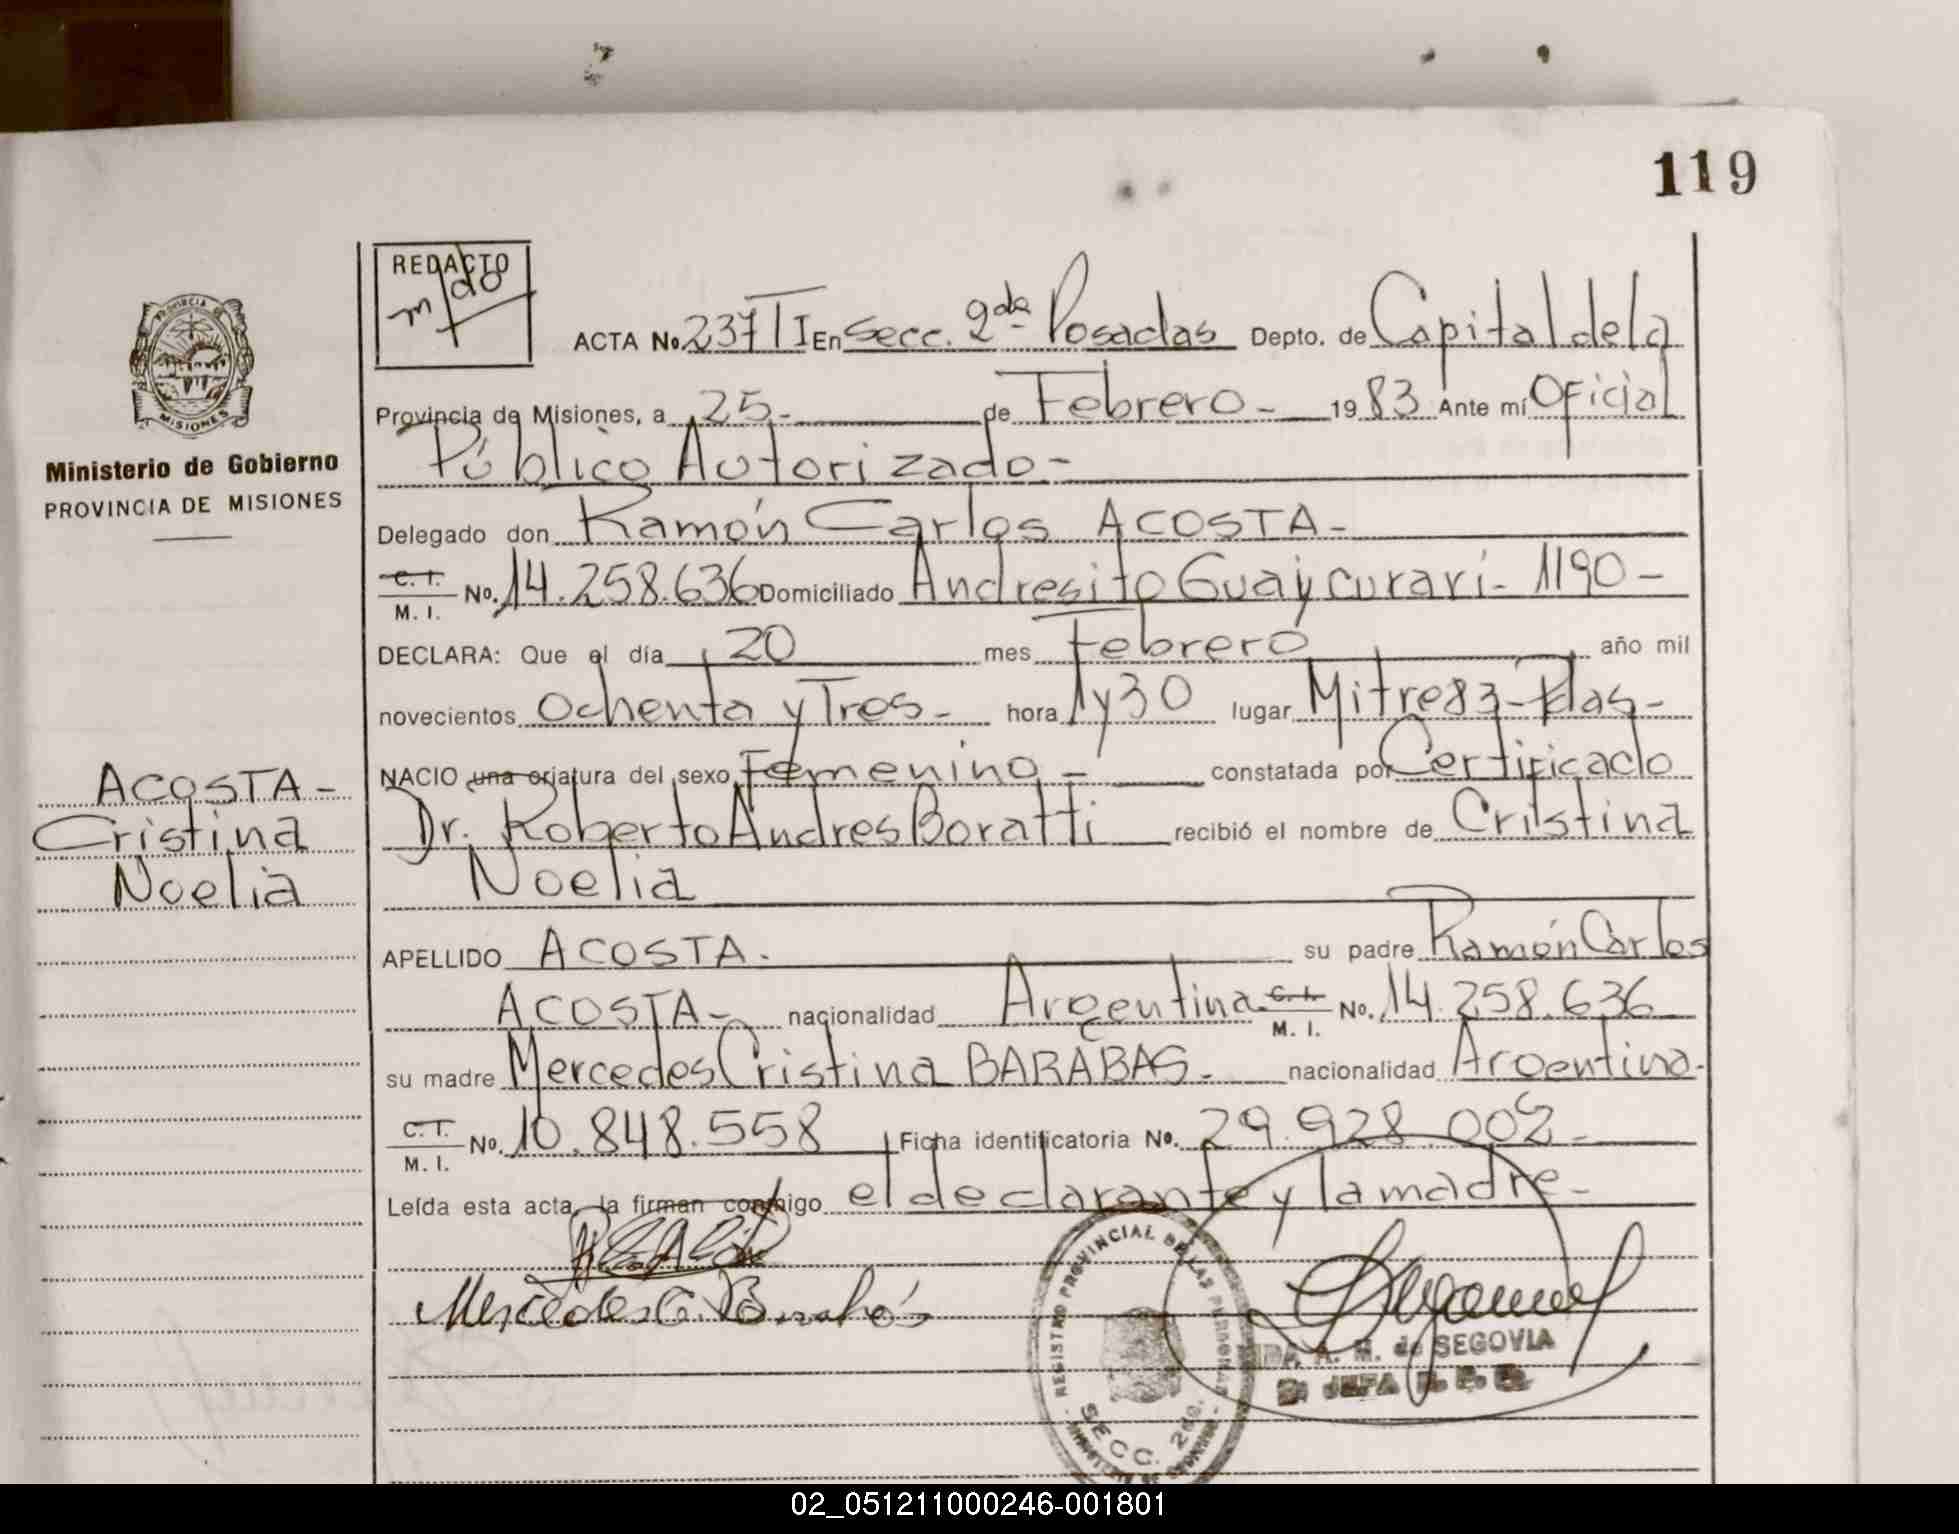 119
REDACTO
PROVINCIA
MISIONES
Ministerio de Gobierno
PROVINCIA DE MISIONES
ACTA No. 237 T I En Secc. 2da Posadas Depto. de Capital de la
Provincia de Misiones, a 25- de Febrero- 1983 Ante mí Oficial
Público Autorizado-
Delegado don Ramón Carlos ACOSTA-
C. I. M. I. No. 14.258.636 Domiciliado Andresito Guaycurarí- 1190-
DECLARA: Que el día 20 mes Febrero año mil
novecientos Ochenta y Tres- hora 1 y 30 lugar Mitre 83- Pdas-
NACIO una criatura del sexo Femenino- constatada por Certificado
Dr. Roberto Andres Boratti recibió el nombre de Cristina
Noelia
APELLIDO ACOSTA. su padre Ramón Carlos
ACOSTA- nacionalidad Argentina C. I. M. I. No. 14.258.636
su madre Mercedes Cristina BARABAS- nacionalidad Argentina-
C. I. M. I. No. 10.848.558 Ficha identificatoria No. 29.928.002-
Leída esta acta, la firman conmigo el declarante y la madre-
ACOSTA-
Cristina
Noelia
Mercedes C. Barabás
REGISTRO PROVINCIAL DE LAS PERSONAS
SECC. 2da.
A. M. de SEGOVIA
JEFA
02_051211000246-001801